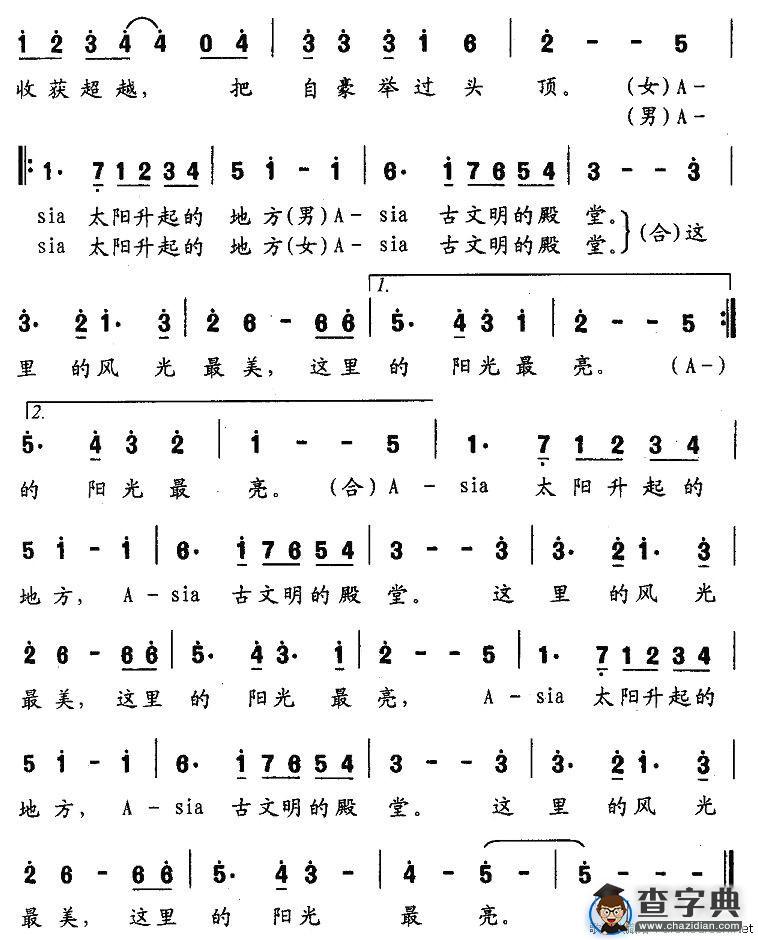 1 2 3 4 4 0 4 | 3 3 3 1 6 | 2 - - 5 |
收获超越， 把 自豪举过头 顶。 (女)A-
(男)A-
‖: 1. 7 1 2 3 4 | 5 1 - 1 | 6. 1 7 6 5 4 | 3 - - 3 |
sia 太阳升起的 地方(男)A- sia 古文明的殿 堂。
sia 太阳升起的 地方(女)A- sia 古文明的殿 堂。 (合)这
1.
3. 2 1. 3 | 2 6 - 6 6 | 5. 4 3 1 | 2 - - 5 :‖
里 的风 光 最美，这里的 阳光最 亮。 (A-)
2.
5. 4 3 2 | 1 - - 5 | 1. 7 1 2 3 4 |
的 阳光最 亮。 (合)A - sia 太阳升起的
5 1 - 1 | 6. 1 7 6 5 4 | 3 - - 3 | 3. 2 1. 3 |
地方， A - sia 古文明的殿 堂。 这 里 的风 光
2 6 - 6 6 | 5. 4 3. 1 | 2 - - 5 | 1. 7 1 2 3 4 |
最美，这里 的 阳光 最 亮， A - sia 太阳升起的
5 1 - 1 | 6. 1 7 6 5 4 | 3 - - 3 | 3. 2 1. 3 |
地方， A - sia 古文明的殿 堂。 这 里 的风 光
2 6 - 6 6 | 5. 4 3 - | 4 - 5 - | 5 - - - ‖
最美，这里 的 阳光 最 亮。
查字典
www.chazidian.com